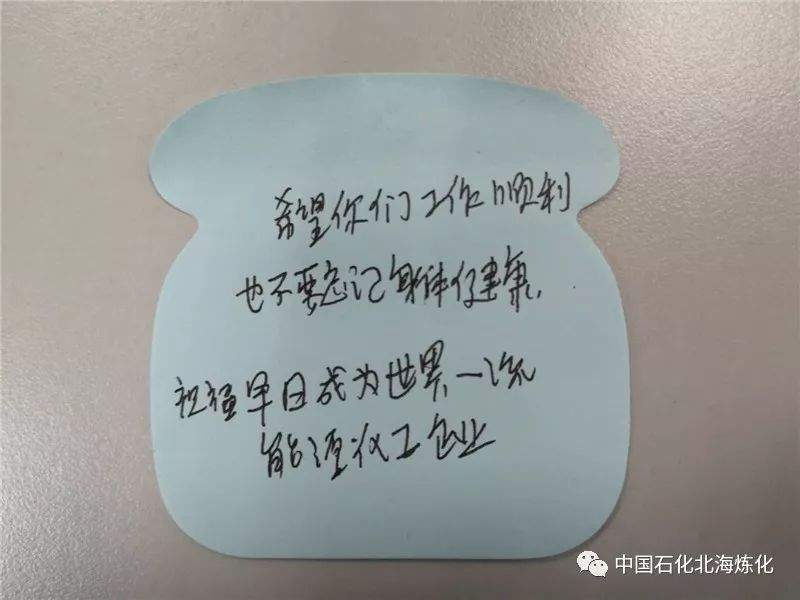 希望你们工作顺利
也不要忘记身体健康,
祝福早日成为世界一流
能源化工企业
中国石化北海炼化